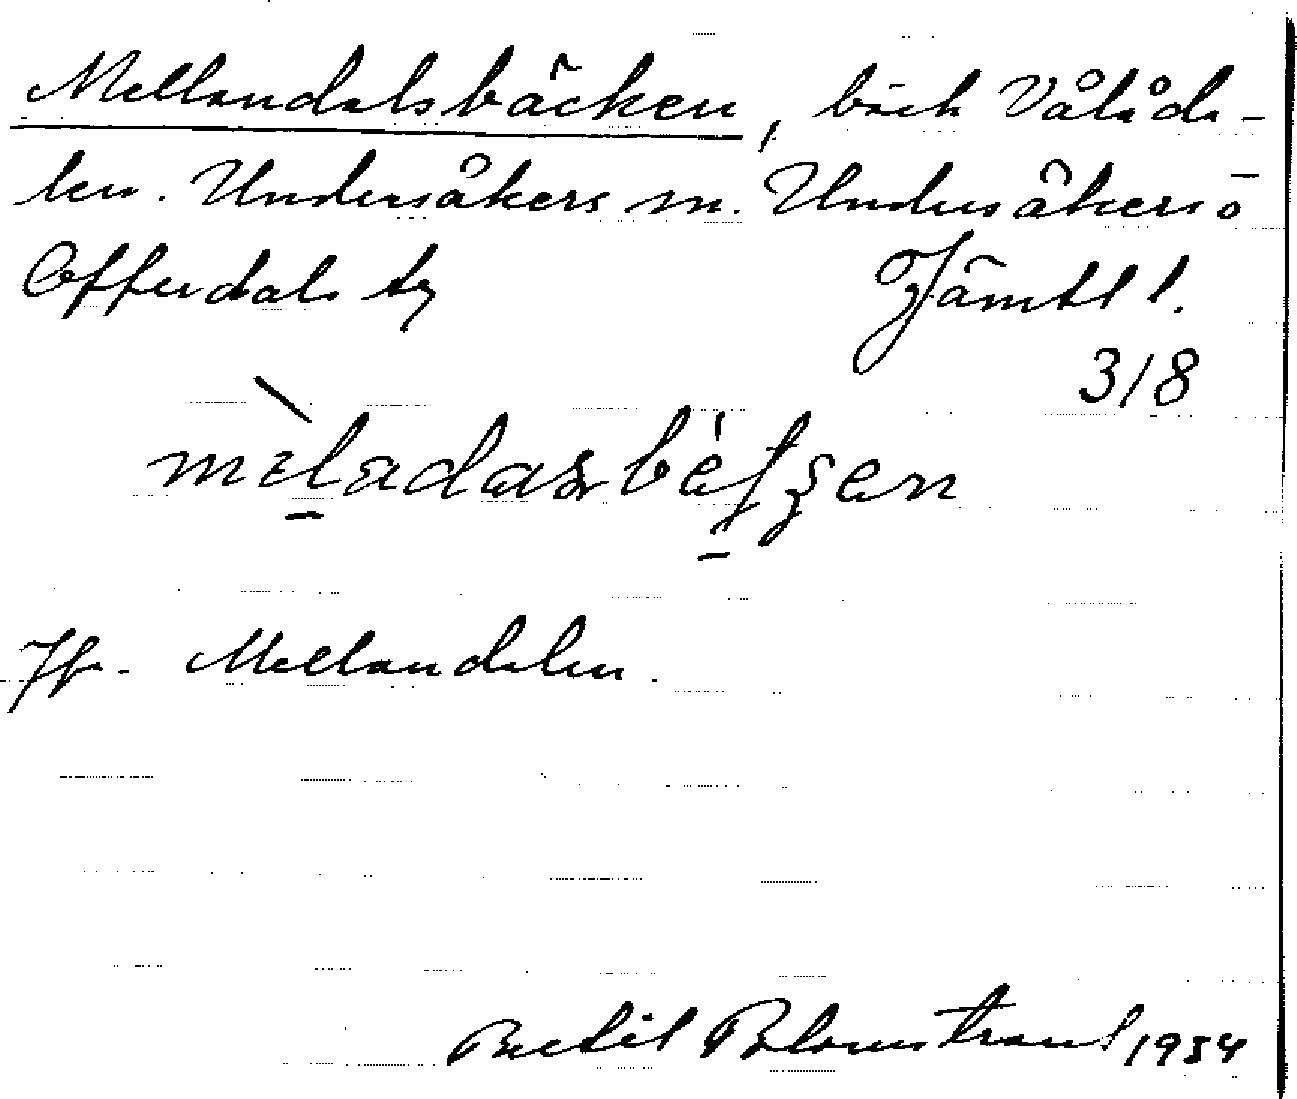 Mellandalsbäcken, bäck Vålåda-
len. Undersåkers sn. Undersåkers o
Offerdals tg Jämtl l.
3/8
Jfr. Mellandalen.
Bertil Blomstrand 1934